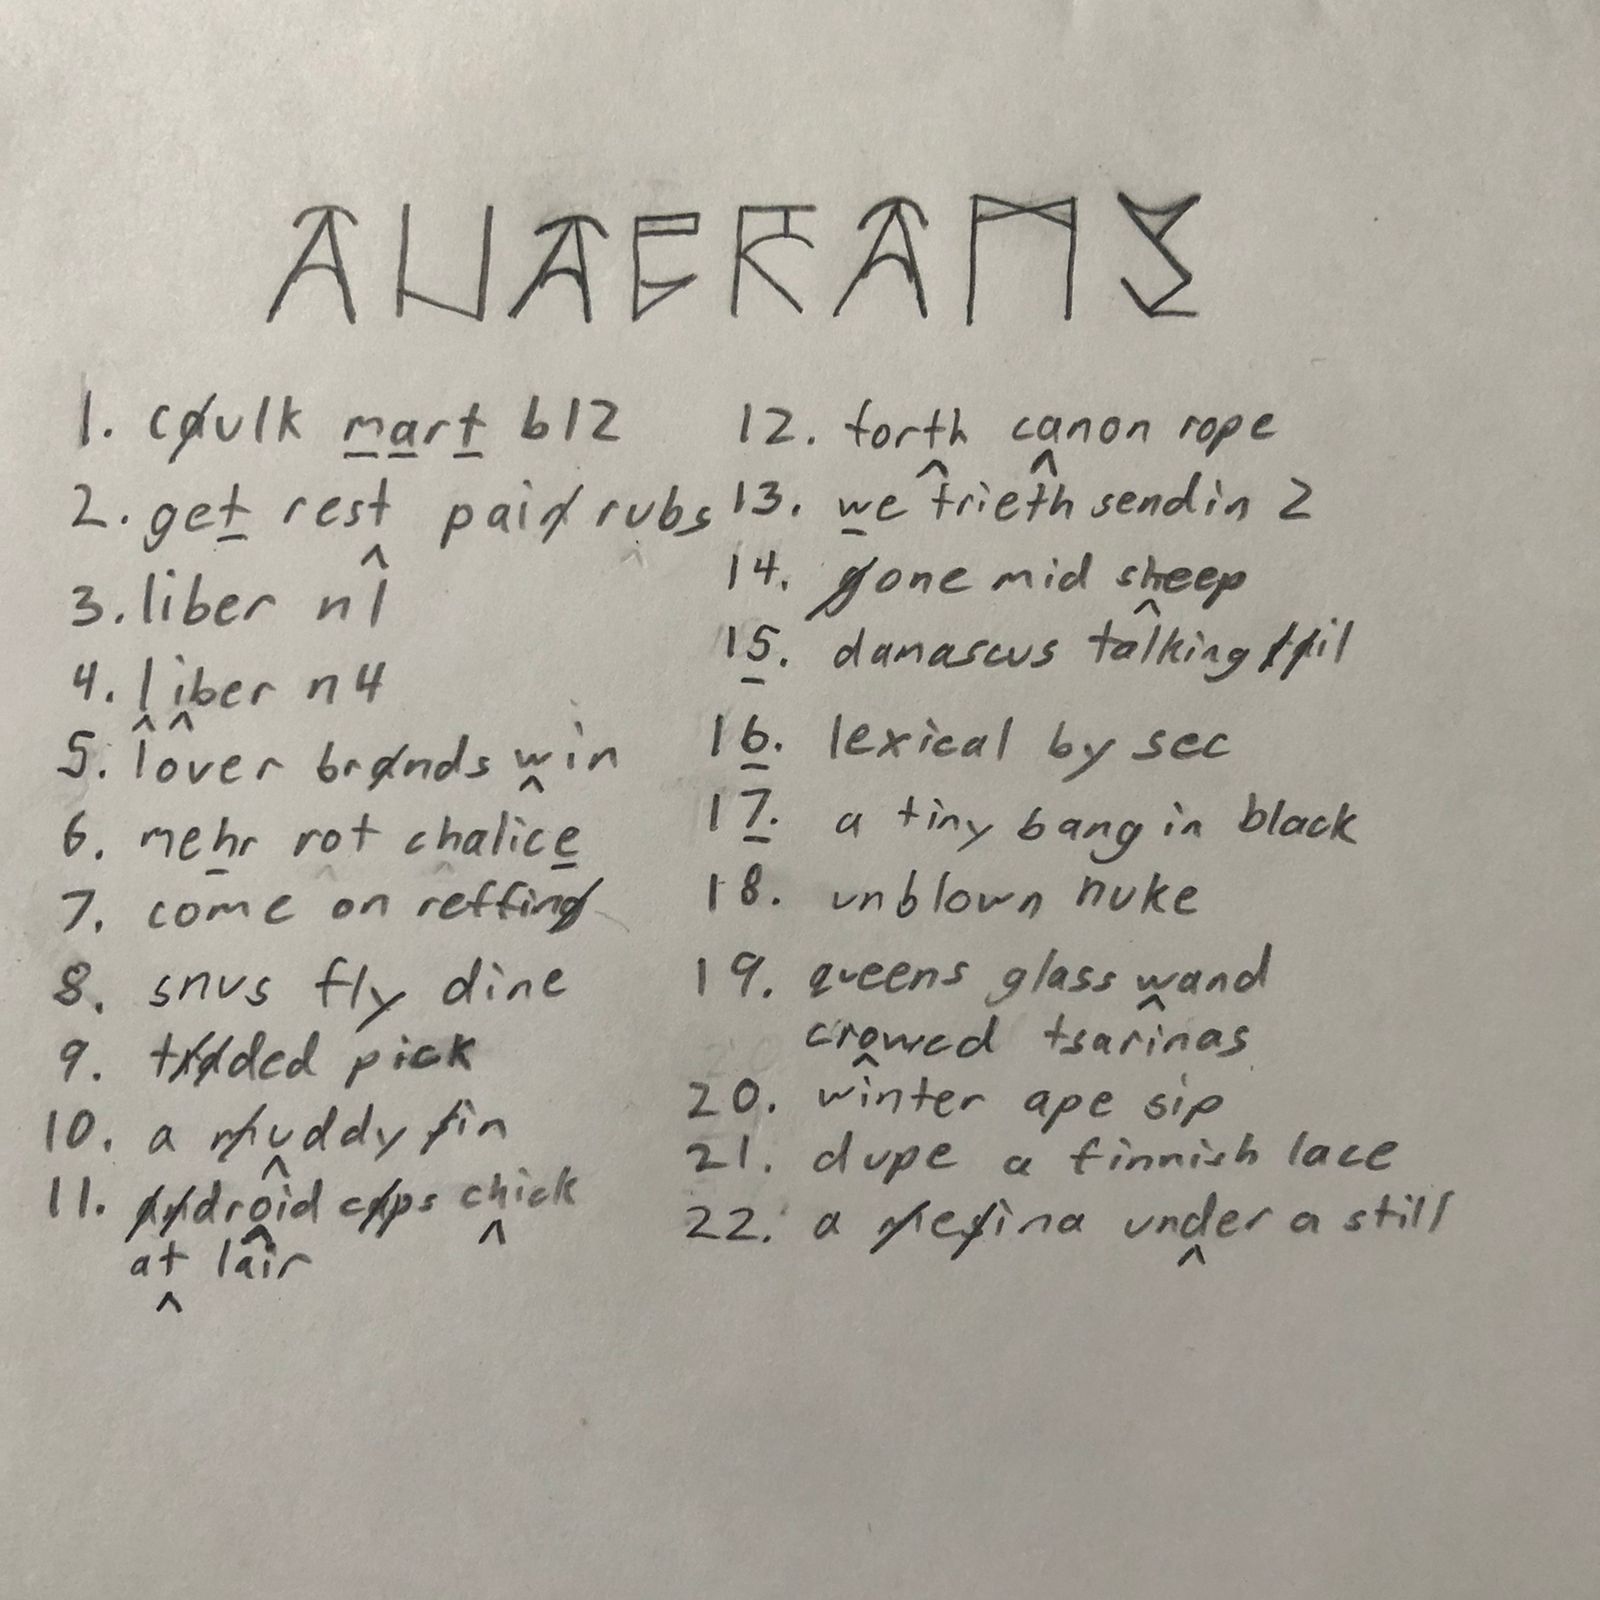 ANAGRAMS
1. caulk mart b12
2. get rest pain rubs
3. liber n1
4. liber n4
5. lover brands win
6. mehr rot chalice
7. come on reffing
8. snus fly dine
9. ded pick
10. a muddy fin
11. android caps chick
at lair
12. forth canon rope
13. we frieth sendin 2
14. gone mid sheep
15. damascus talking
16. lexical by sec
17. a tiny bang in black
18. unblown nuke
19. queens glass wand
crowed tsarinas
20. winter ape sip
21. dupe a finnish lace
22. a under a still